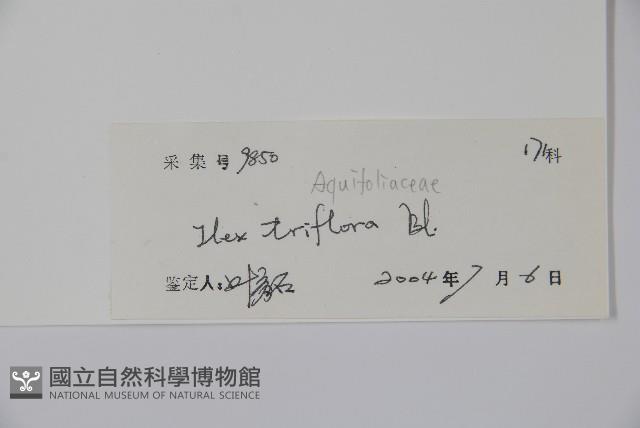 采集号 9850 171科
Aquifoliaceae
Ilex triflora Bl.
鉴定人:叶
2004年7月6日
國立自然科學博物館
NATIONAL MUSEUM OF NATURAL SCIENCE